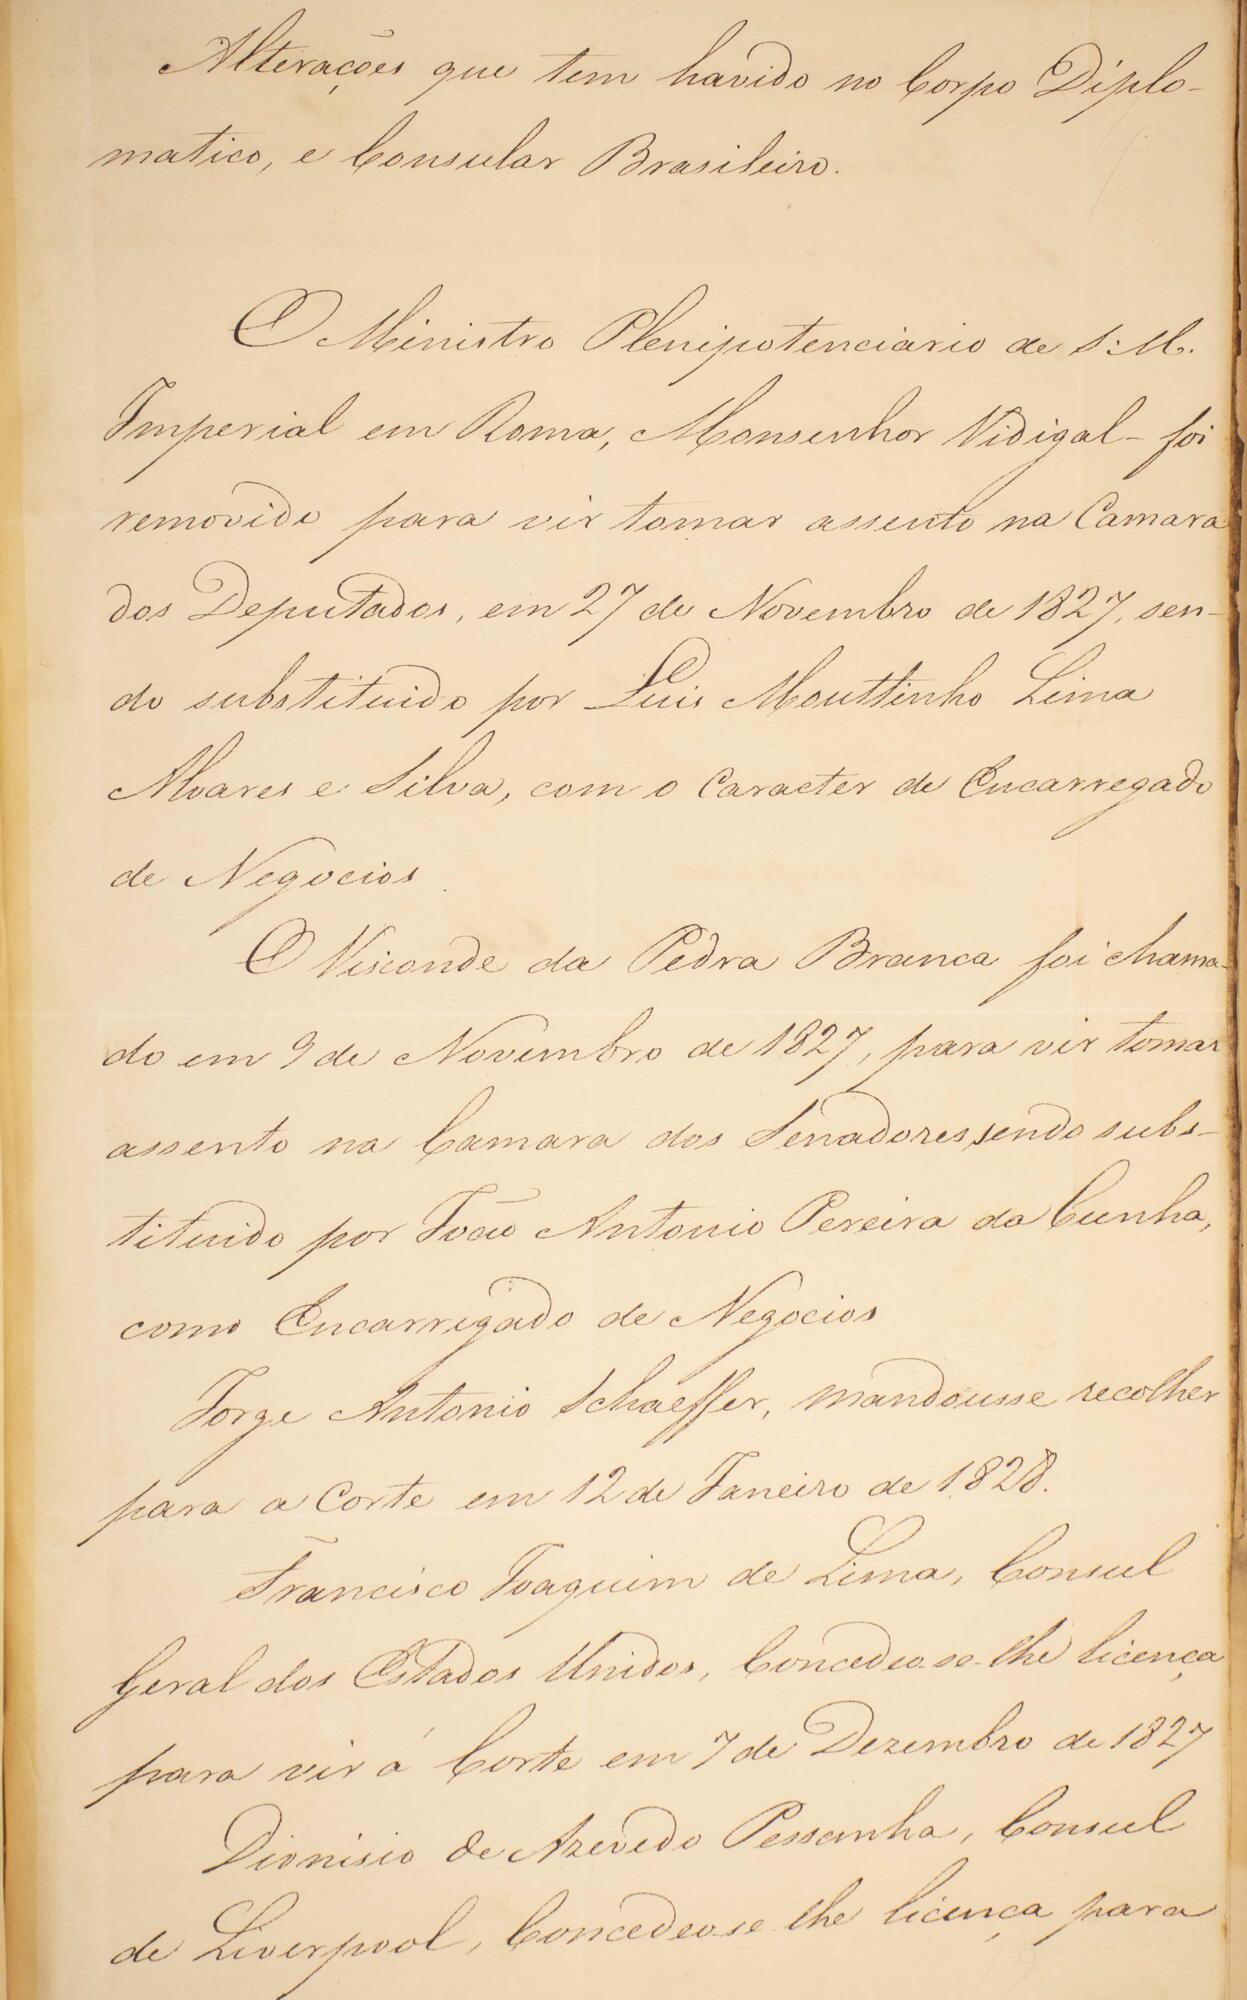 Alterações que tem havido no Corpo Diplo-
matico, e Consular Brasileiro.
O Ministro Plenipotenciario de S. M.
Imperial em Roma, Monsenhor Vidigal - foi
removido para vir tomar assento na Camara
dos Deputados, em 27 de Novembro de 1827, sen-
do substituido por Luis Mouttinho Lima
Alvares e Silva, com o Caracter de Encarregado
de Negocios.
O Visconde da Pedra Branca foi chama-
do em 9 de Novembro de 1827, para vir tomar
assento na Camara dos Senadores, sendo subs-
tituido por João Antonio Pereira da Cunha,
como Encarregado de Negocios
Jorge Antonio Schaeffer, mandousse recolher
para a Corte em 12 de Janeiro de 1828.
Francisco Joaquim de Lima, Consul
Geral dos Estados Unidos, Concedeo-se-lhe licença
para vir á Corte em 7 de Dezembro de 1827
Dionisio de Azevedo Pessanha, Consul
de Liverpool, Concedeo-se lhe licença para